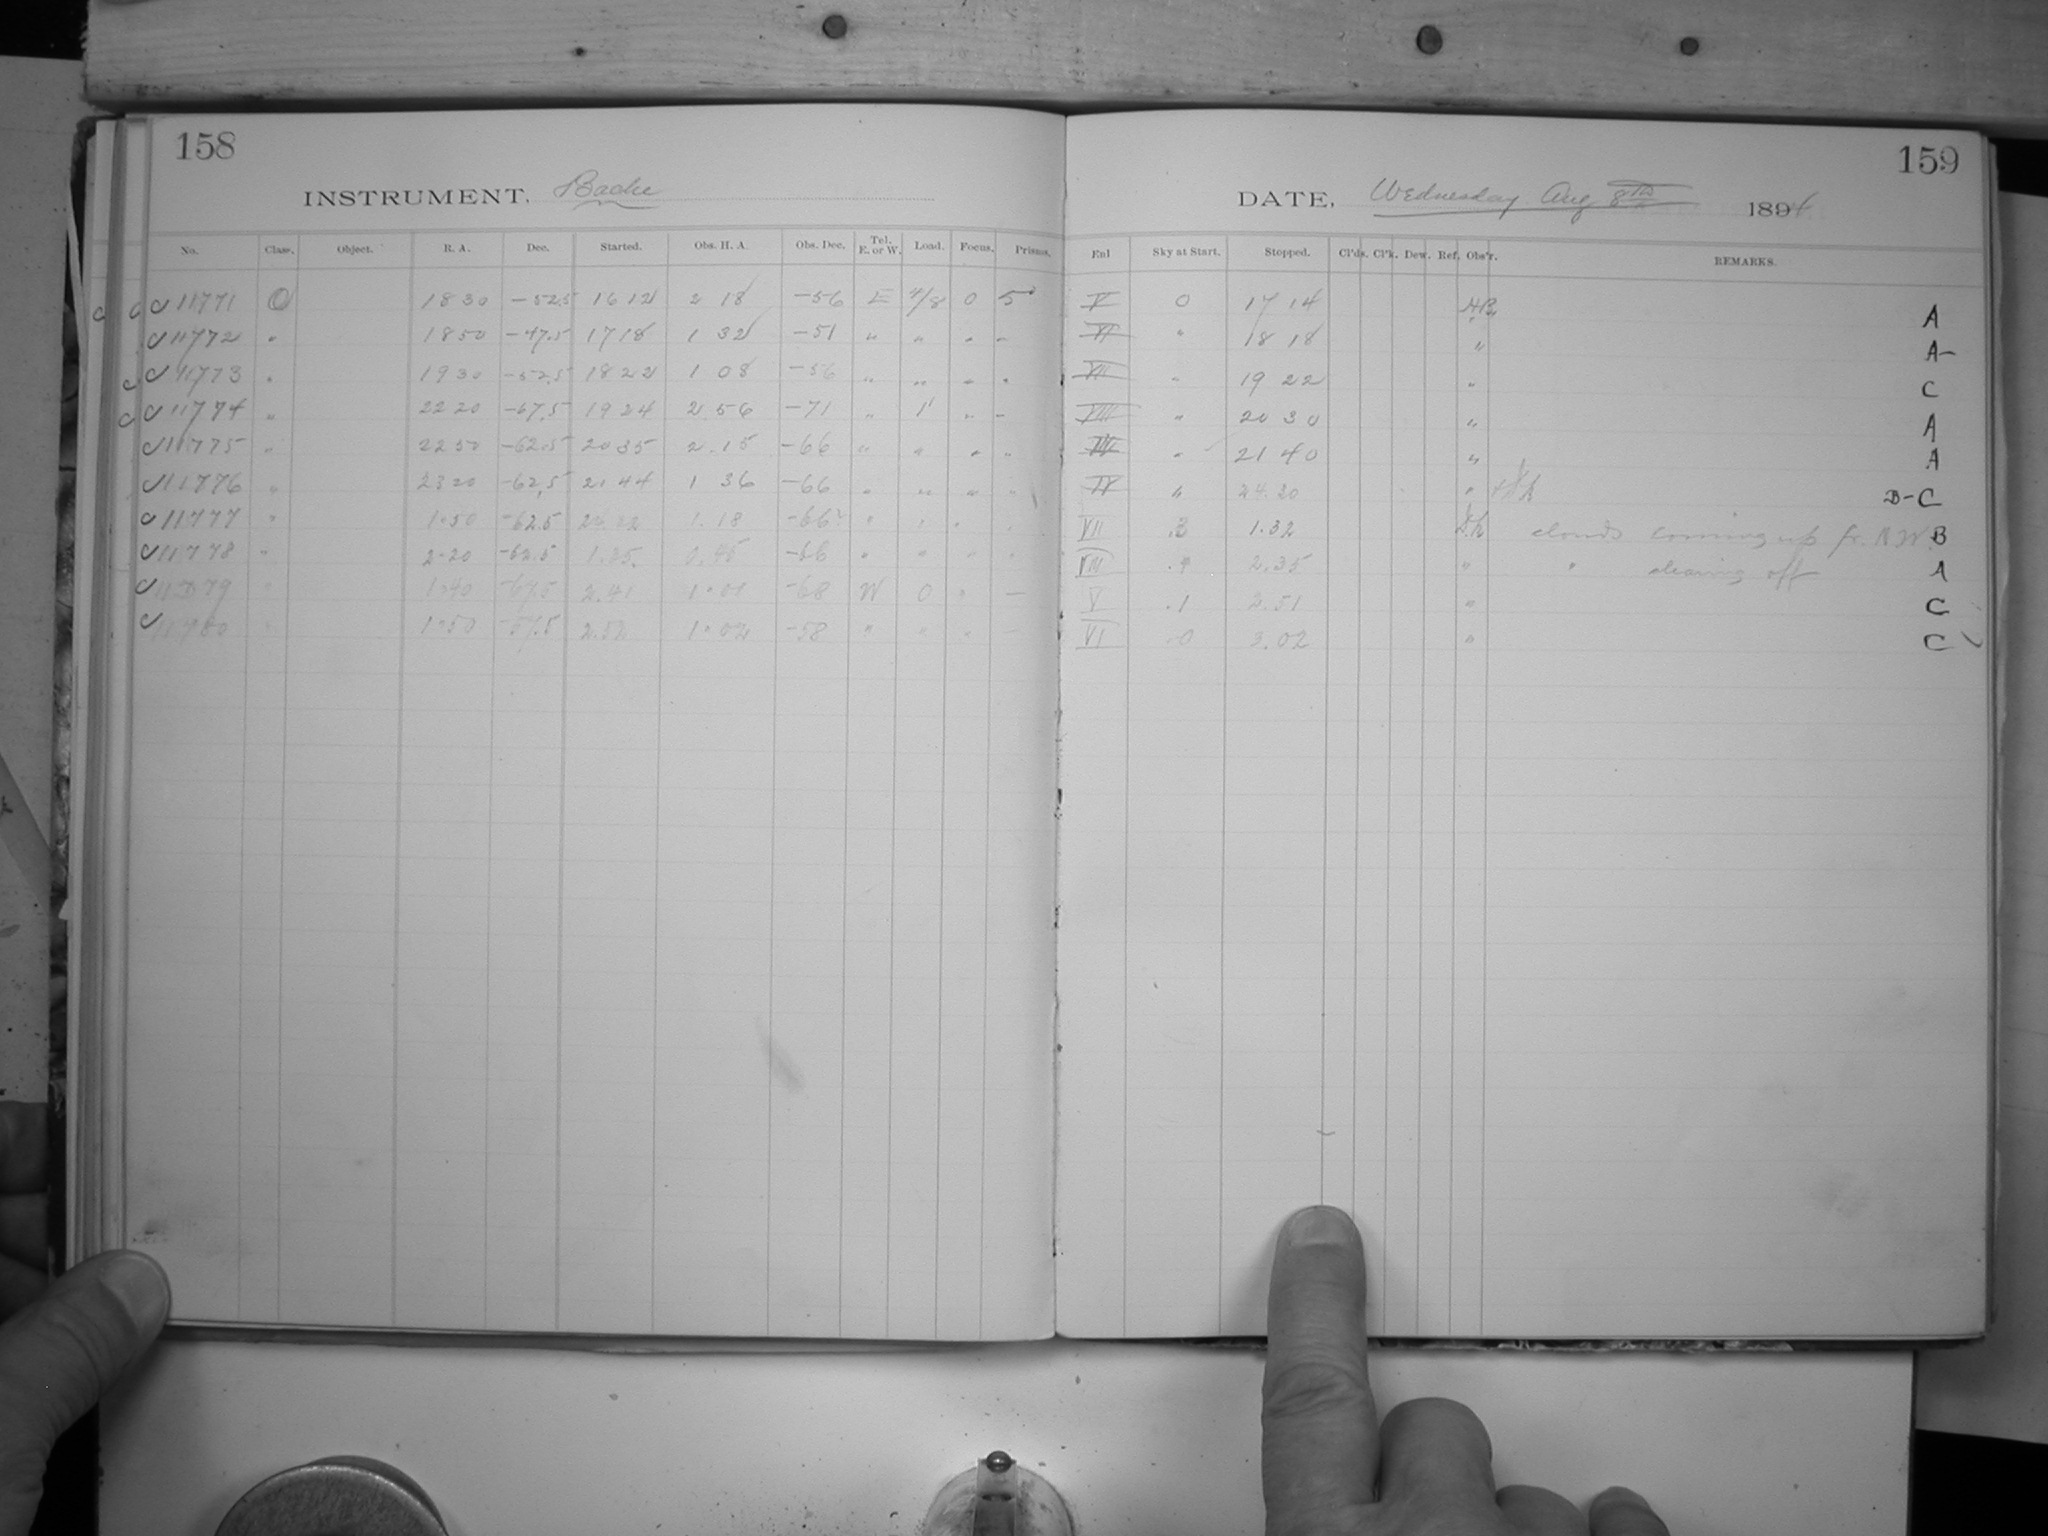 158
INSTRUMENT, Bache
No. Class. Object. R. A. Dec. Started. Obs. H. A. Obs. Dec. Tel. E. or W. Load. Focus. Prisms.
11771 O 18 30 -52.5 16 12 2 18 -56 E 4/8 0 5
11772 " 18 50 -47.5 17 18 1 32 -51 " " " "
11773 " 19 30 -52.5 18 22 1 08 -56 " " " "
11774 " 22 20 -67.5 19 24 2 56 -71 " 1 " "
11775 " 22 50 -62.5 20 35 2.15 -66 " " " "
11776 " 23 20 -62.5 21 44 1 36 -66 " " " "
11777 " 1.50 -62.5 1.18 -66 " " "
11778 " 2.20 -62.5 1.35. 0.45 -66 " " " "
11779 " 1.40 -67.5 2.41 1.01 -68 W 0 " –
11780 1.50 -57.5 2.52 1.02 -58 " " " –
159
DATE, Wednesday Aug 8th 1894
Enl Sky at Start. Stopped. Cl'ds. Cl'k. Dew. Ref. Obs'r. REMARKS.
V 0 17 14 A
VI " 18 18 " A-
VII " 19 22 " C
VIII " 20 30 " A
" 21 40 " A
IV " 24.20 " B-C
VII 1.32 clouds coming up fr. N.W. B
VIII 2.35 " " clearing off A
V .1 2.51 " C
VI 0 3.02 " C